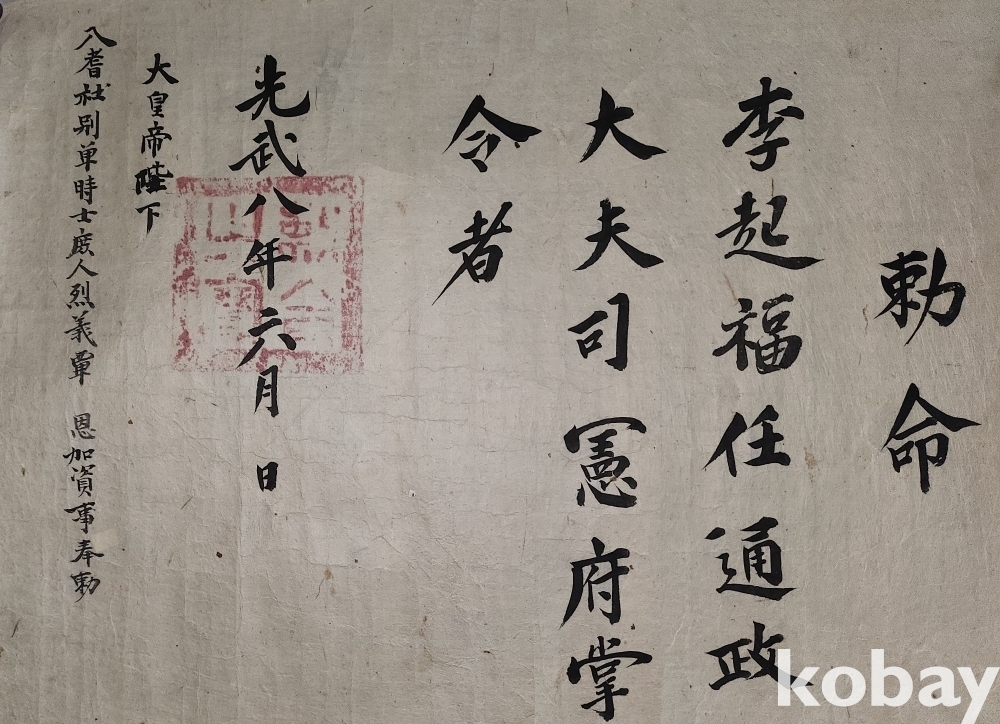 勅命
李起福任通政
大夫司憲府掌
令者
光武八年六月 日
大皇帝陛下
入耆社別单時士庶人烈義軰 恩加資事奉勅
kobay